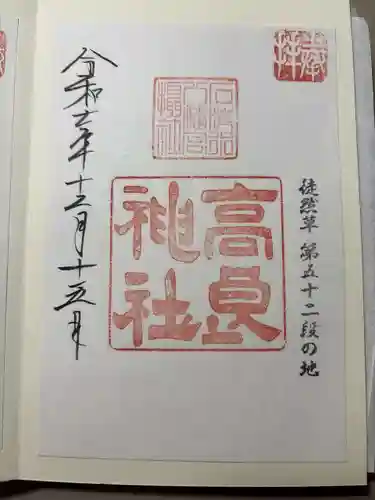 奉拝
徒然草 第五十二段の地
石清水
八幡宮
攝社
高良
神社
令和六年十二月十五日